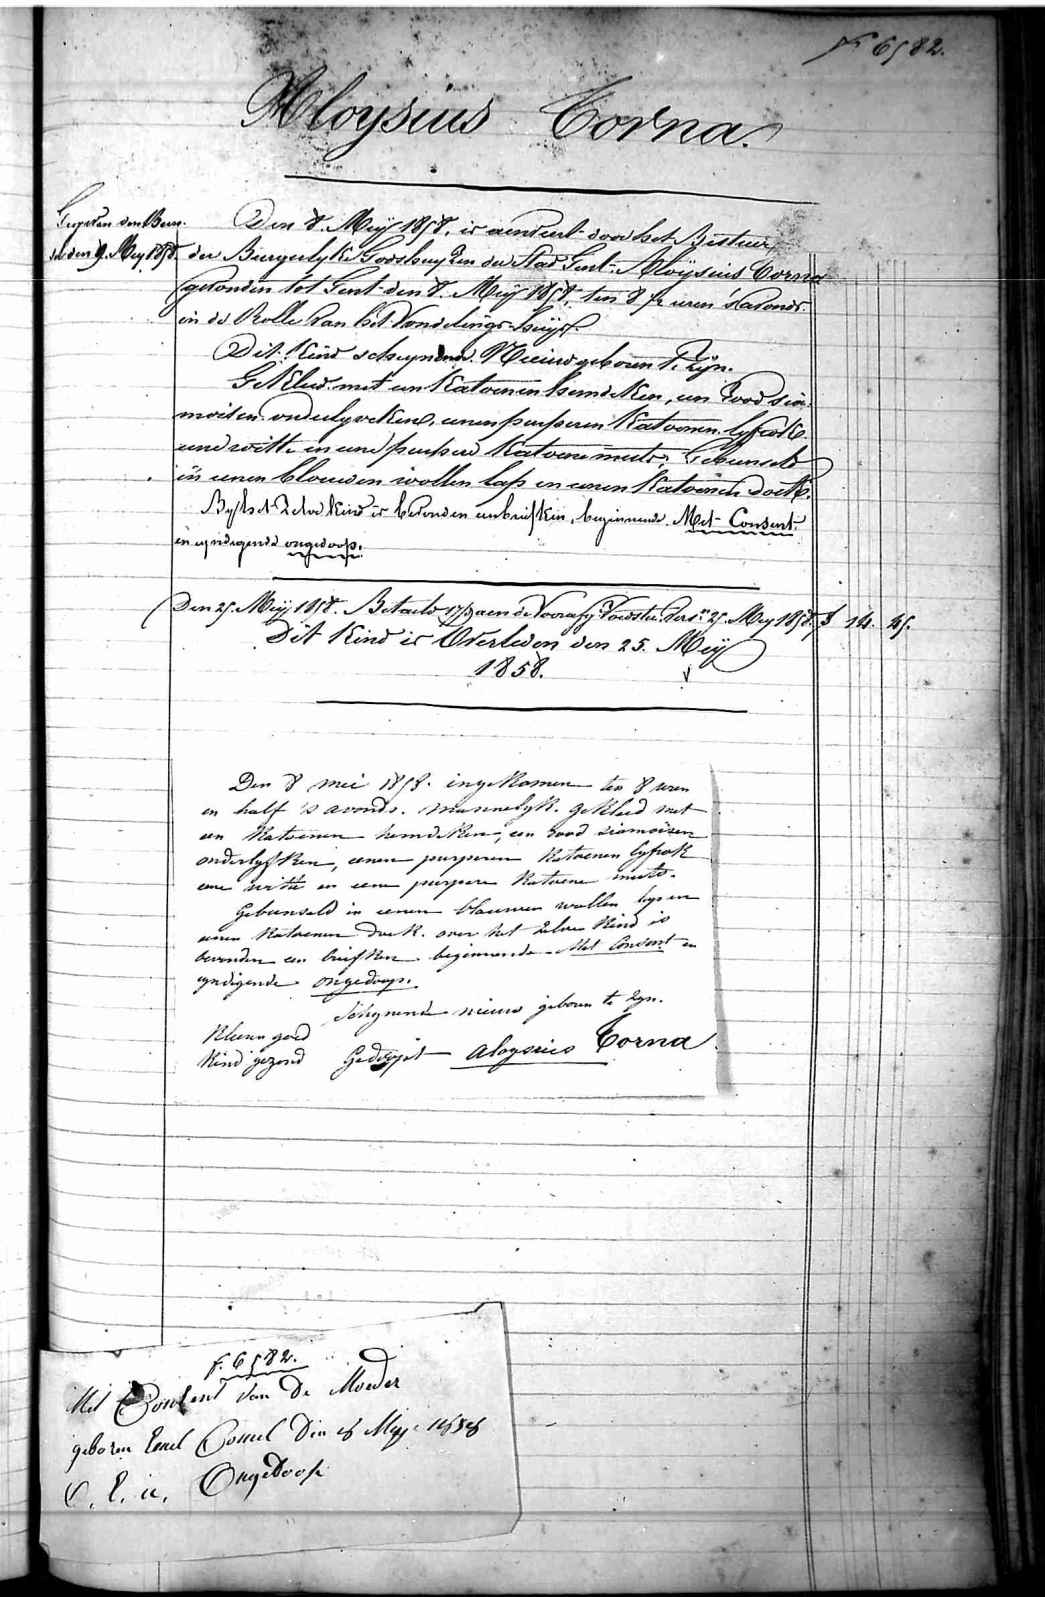 f° 6582.
Aloysius Corna.
den Bur.
den 9. Meÿ 1858.
Den 8. Meÿ 1858, is aenveert door het Bestuer
der Burgerlyke Godshuyzen der Stad Gent. Aloÿsius Corna
gevonden tot Gent den 8. Meÿ 1858, ten 8 ½ uren 's avonds.
in de Rolle van het Vondelings-huÿs.
Dit Kind schynende Nieuwgeboren te zyn.
Gekleed met een Katoenen hemdeken, een rood sia-
moisen onderlyveken, eenen purperen Katoenen lyfrok.
eene witte en eene purpere Katoene muts, Gebunseld
in eenen blouwen wollen lap en eenen Katoenen doek.
By het Zelve Kind is bevonden een briefken, beginnende Met Consent.
en eyndigende ongedoopt.
Den 25 Meÿ 1858. Betaeld aen de Voedster 25 Mey 1858. f 14. 45.
Dit Kind is Overleden den 25. Meÿ
1858.
Den 8 mei 1858. ingekomen ten 8 uren
en half 's avonds. mannelyk. gekleed met
een Katoenen hemdeken, een rood siamoisen
onderlyfken, eenen purperen Katoenen lyfrok
eene witte en eene purpere Katoene muts.
Gebunseld in eenen blauwen wollen lap en
eenen Katoenen doek. over het zelve Kind is
bevonden een briefken beginnende Met Consent en
eyndigende ongedoopt.
Schynende nieuw geboren te zyn.
Kleeren goed
Kind gezond Gedoopt Aloysius Corna.
f. 6582.
Met Consent van De Moeder
geboren Den 8 Meye 1858
Ongedoopt